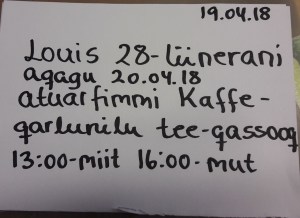 19.04.18
Louis 28-liinerani
aqagu 20.04.18
atuarfimmi Kaffe-
qarlunilu tee-qassooq
13:00-miit 16:00-mut